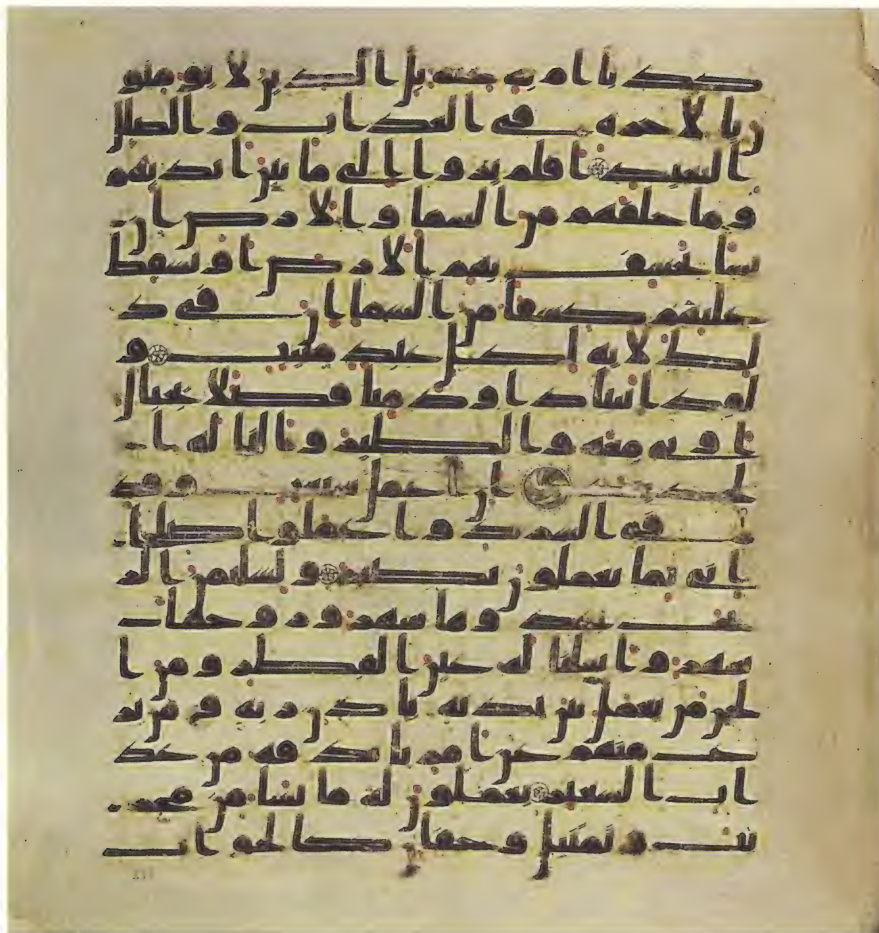 كذبا ام به جنة بل الذين لا يومنو
ن بالاخرة في العذاب والضلل
البعيد افلم يروا الى ما بين ايديهم
وما خلفهم من السما والارض ان
نشا نخسف بهم الارض او نسقط
عليهم كسفا من السما ان في ذ
لك لاية لكل عبد منيب و
لقد اتينا داود منا فضلا يجبال
اوبي معه والطير والنا له ا
لحديد ان اعمل سبغت وقد
ر في السرد واعملوا صلحا
اني بما تعملون بصير ولسليمن الر
يح غدوها شهر ورواحها
شهر واسلنا له عين القطر ومن ا
لجن من يعمل بين يديه باذن ربه ومن يز
غ منهم عن امرنا نذقه من عذ
اب السعير يعملون له ما يشا من محر
يب وتمثيل وجفان كالجواب